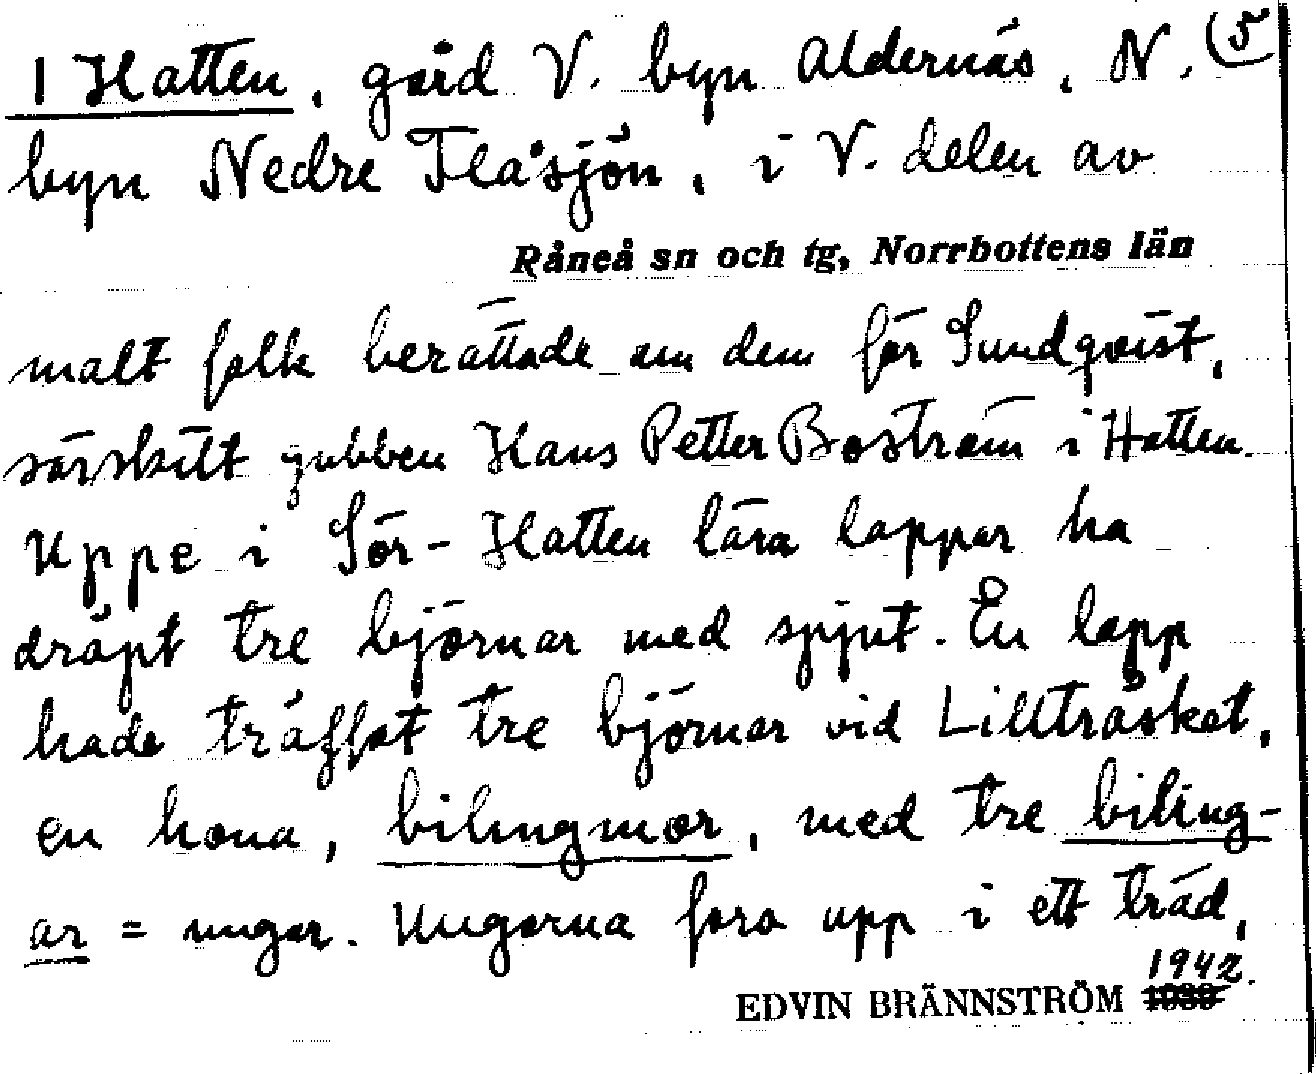 1 Hatten, gård V. byn Aldernäs, N. (5
byn Nedre Flåsjön, i V. delen av
Råneå sn och tg, Norrbottens län
malt folk berättade om dem för Sundqvist,
särskilt gubben Hans Petter Boström i Hatten.
Uppe i Sör-Hatten lära lappar ha
dräpt tre björnar med spjut. En lapp
hade träffat tre björnar vid Lillträsket,
en hona, bilingmor, med tre biling-
ar = ungar. Ungarna foro upp i ett träd,
1942.
EDVIN BRÄNNSTRÖM 1939